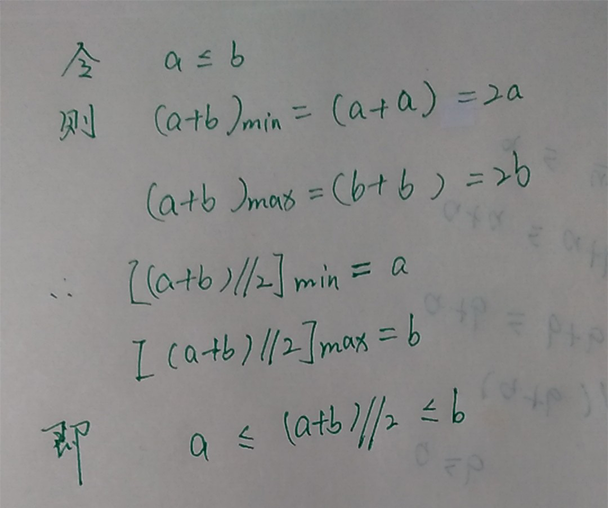 令 a ≤ b
则 (a+b)min = (a+a) = 2a
(a+b)max = (b+b) = 2b
∴ [(a+b)//2]min = a
[(a+b)//2]max = b
即 a ≤ (a+b)//2 ≤ b